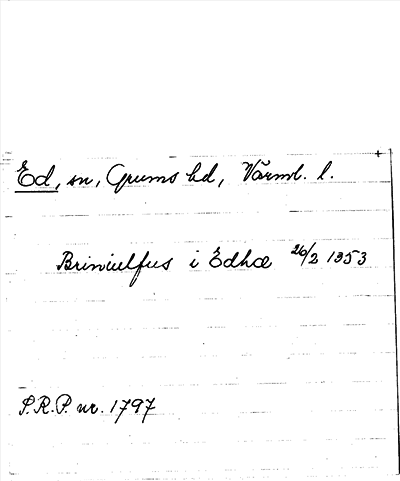 Ed, sn, Grums hd, Värml. l.
Briniulfus i Edhæ 26/2 1353
S.R.P. nr. 1797